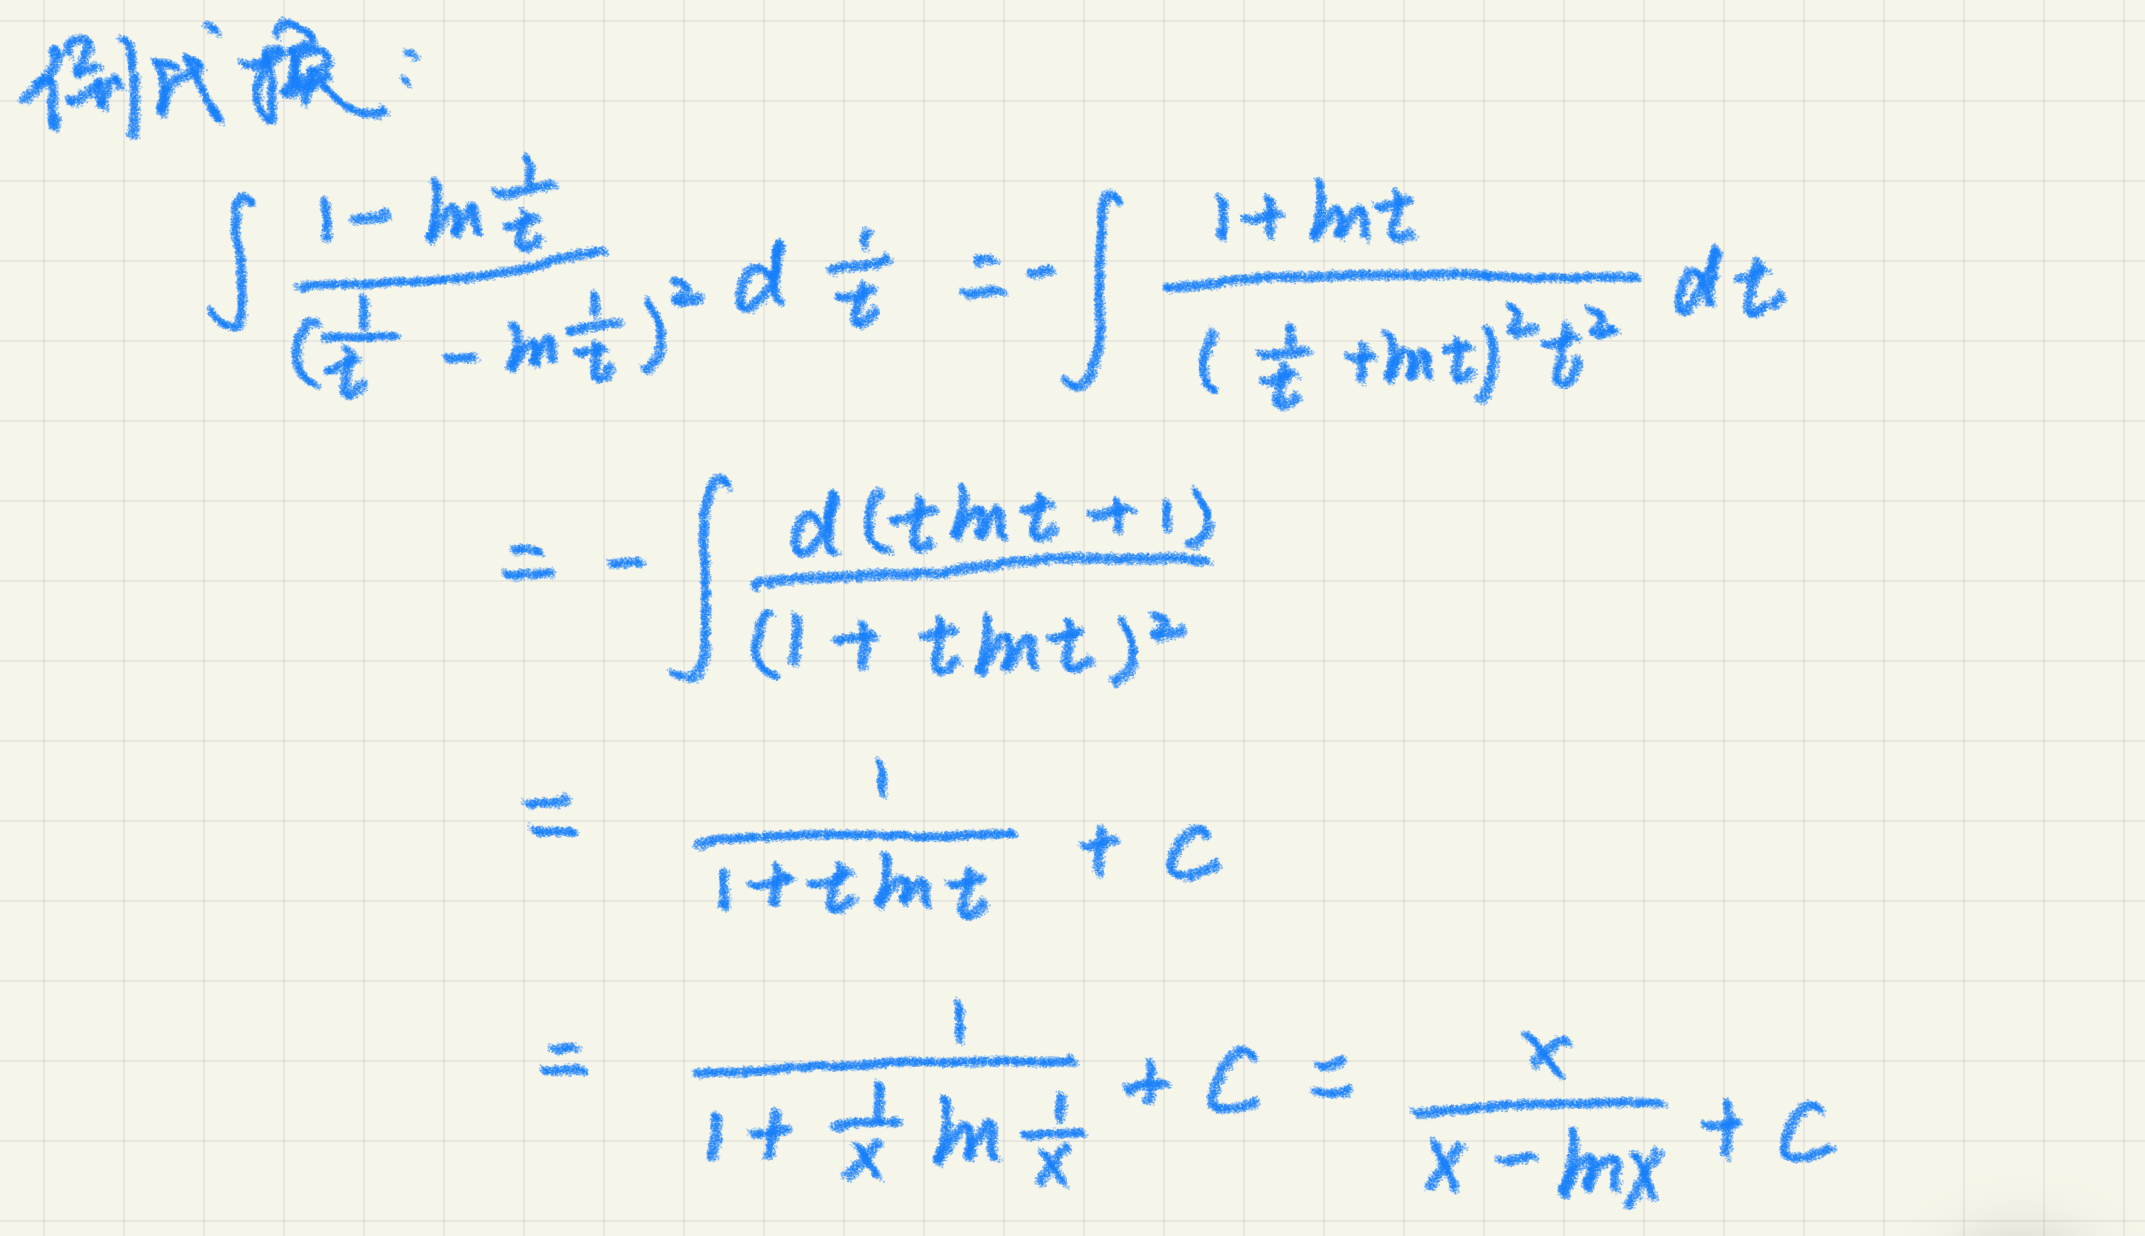 倒代换:
∫ (1 - ln 1/t) / (1/t - ln 1/t)² d 1/t = - ∫ (1 + ln t) / ((1/t + ln t)² t²) dt
= - ∫ d(t ln t + 1) / (1 + t ln t)²
= 1 / (1 + t ln t) + C
= 1 / (1 + 1/x ln 1/x) + C = x / (x - ln x) + C